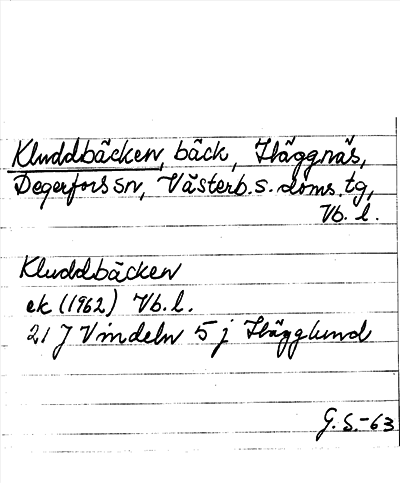 Kluddbäcken, bäck, Häggnäs,
Degerfors sn, Västerb. s. doms. tg,
Vb. l.
Kluddbäcken
ek (1962) Vb. l.
21 J Vindeln 5 j Hägglund
G. S.-63